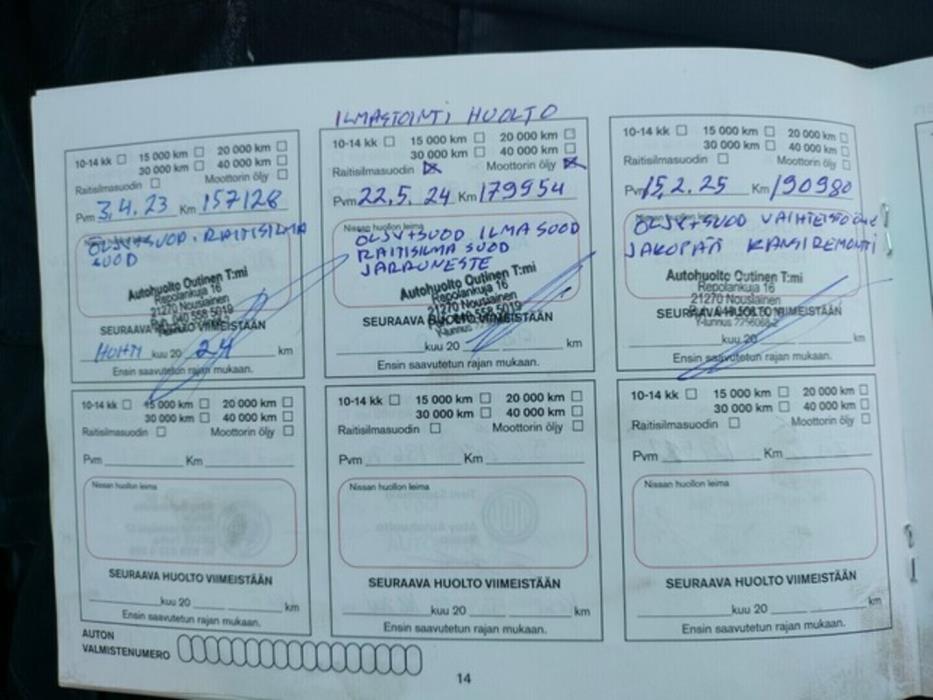 ILMASTOINTI HUOLTO
10-14 kk 15 000 km 20 000 km
30 000 km 40 000 km
Raitisilmasuodin Moottorin öljy
Pvm 3.4.23 Km 157128
Nissan huollon leima
ÖLJY+SUOD. RAITISILMA
SUOD
Autohuolto Outinen T:mi
Repolankuja 16
21270 Nousiainen
P. 040 558 5019
SEURAAVA HUOLTO VIIMEISTÄÄN
HUHTI kuu 20 24 km
Ensin saavutetun rajan mukaan.
10-14 kk 15 000 km 20 000 km
30 000 km 40 000 km
Raitisilmasuodin Moottorin öljy
Pvm 22.5.24 Km 179954
Nissan huollon leima
ÖLJY+SUOD ILMA SUOD
RAITISILMA SUOD
JARRUNESTE
Autohuolto Outinen T:mi
Repolankuja 16
21270 Nousiainen
P. 040 558 5019
Y-tunnus
SEURAAVA HUOLTO VIIMEISTÄÄN
kuu 20 km
Ensin saavutetun rajan mukaan.
10-14 kk 15 000 km 20 000 km
30 000 km 40 000 km
Raitisilmasuodin Moottorin öljy
Pvm 15.2.25 Km 190980
Nissan huollon leima
ÖLJY+SUOD VAIHTEISTO
JAKOPÄÄ KANSIREMONTTI
Autohuolto Outinen T:mi
Repolankuja 16
21270 Nousiainen
Y-tunnus
SEURAAVA HUOLTO VIIMEISTÄÄN
kuu 20 km
Ensin saavutetun rajan mukaan.
10-14 kk 15 000 km 20 000 km
30 000 km 40 000 km
Raitisilmasuodin Moottorin öljy
Pvm Km
Nissan huollon leima
SEURAAVA HUOLTO VIIMEISTÄÄN
kuu 20 km
Ensin saavutetun rajan mukaan.
10-14 kk 15 000 km 20 000 km
30 000 km 40 000 km
Raitisilmasuodin Moottorin öljy
Pvm Km
Nissan huollon leima
SEURAAVA HUOLTO VIIMEISTÄÄN
kuu 20 km
Ensin saavutetun rajan mukaan.
10-14 kk 15 000 km 20 000 km
30 000 km 40 000 km
Raitisilmasuodin Moottorin öljy
Pvm Km
Nissan huollon leima
SEURAAVA HUOLTO VIIMEISTÄÄN
kuu 20 km
Ensin saavutetun rajan mukaan.
AUTON
VALMISTENUMERO
14